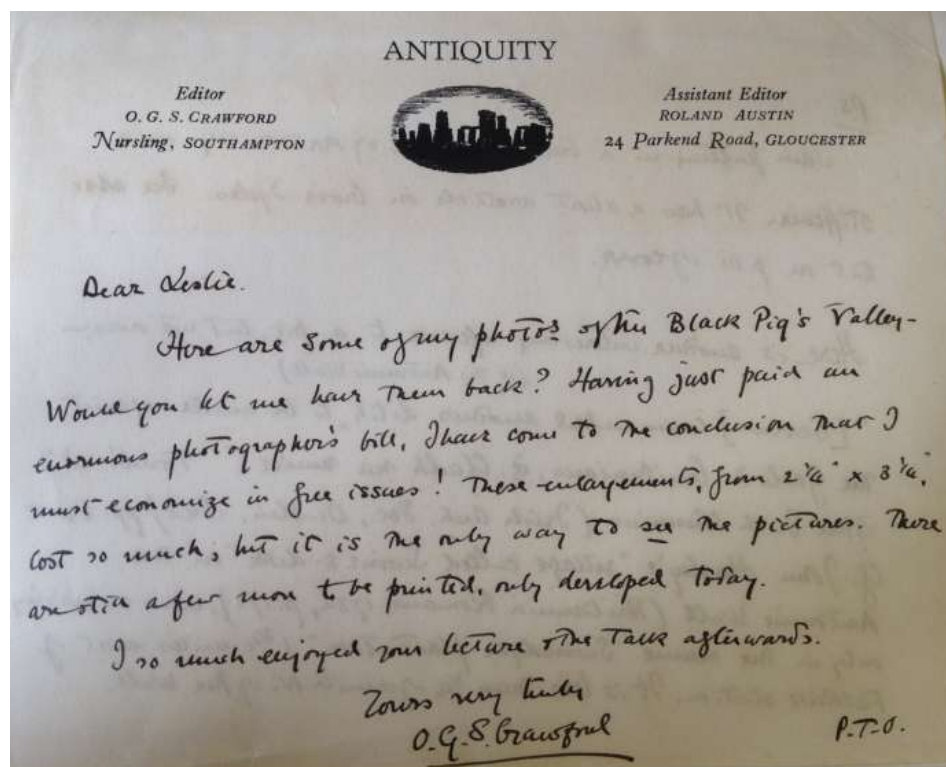 ANTIQUITY
Editor
O. G. S. CRAWFORD
Nursling, SOUTHAMPTON
Assistant Editor
ROLAND AUSTIN
24 Parkend Road, GLOUCESTER
Dear Leslie.
Here are some of my photos of the Black Pig's Valley-
Would you let me have them back? Having just paid an
enormous photographer's bill, I have come to the conclusion that I
must economize in free issues! These enlargements, from 2 1/4" x 3 1/4",
cost so much, but it is the only way to see the pictures. There
are still a few more to be printed, only developed today.
I so much enjoyed your lecture & the talk afterwards.
Yours very truly
O.G.S. Crawford
P.T.O.